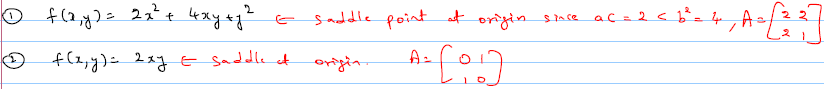 ① f(x,y) = 2x² + 4xy + y² ← saddle point at origin since ac = 2 < b² = 4, A = [2 2; 2 1]
② f(x,y) = 2xy ← saddle at origin. A = [0 1; 1 0]